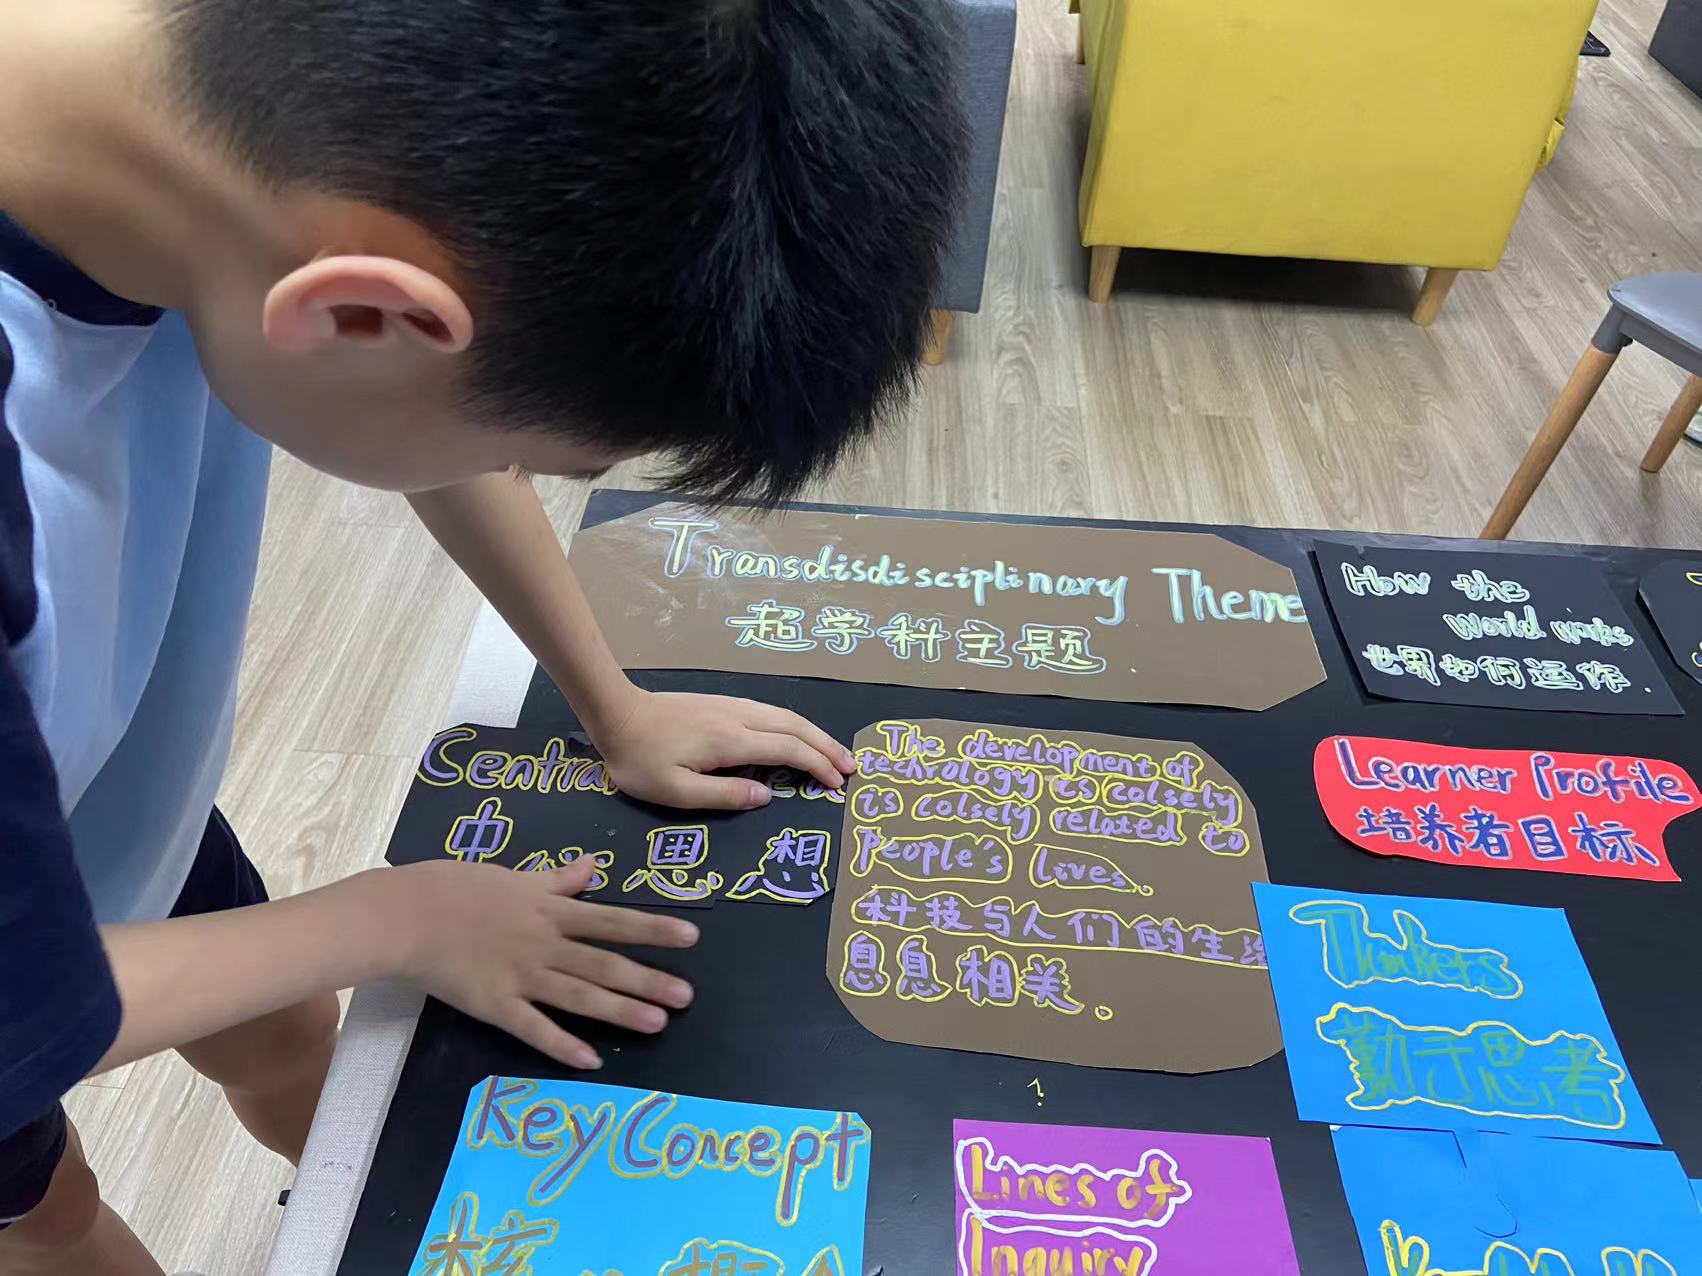 Transdisdisciplinary Theme
超学科主题
How the
World works
世界如何运作.
Central
中心思想
The development of
technology is colsely
is colsely related to
People's lives.
科技与人们的生活
息息相关。
Learner Profile
培养者目标
Thinkers
勤于思考
Key Concept
Lines of
Inquiry